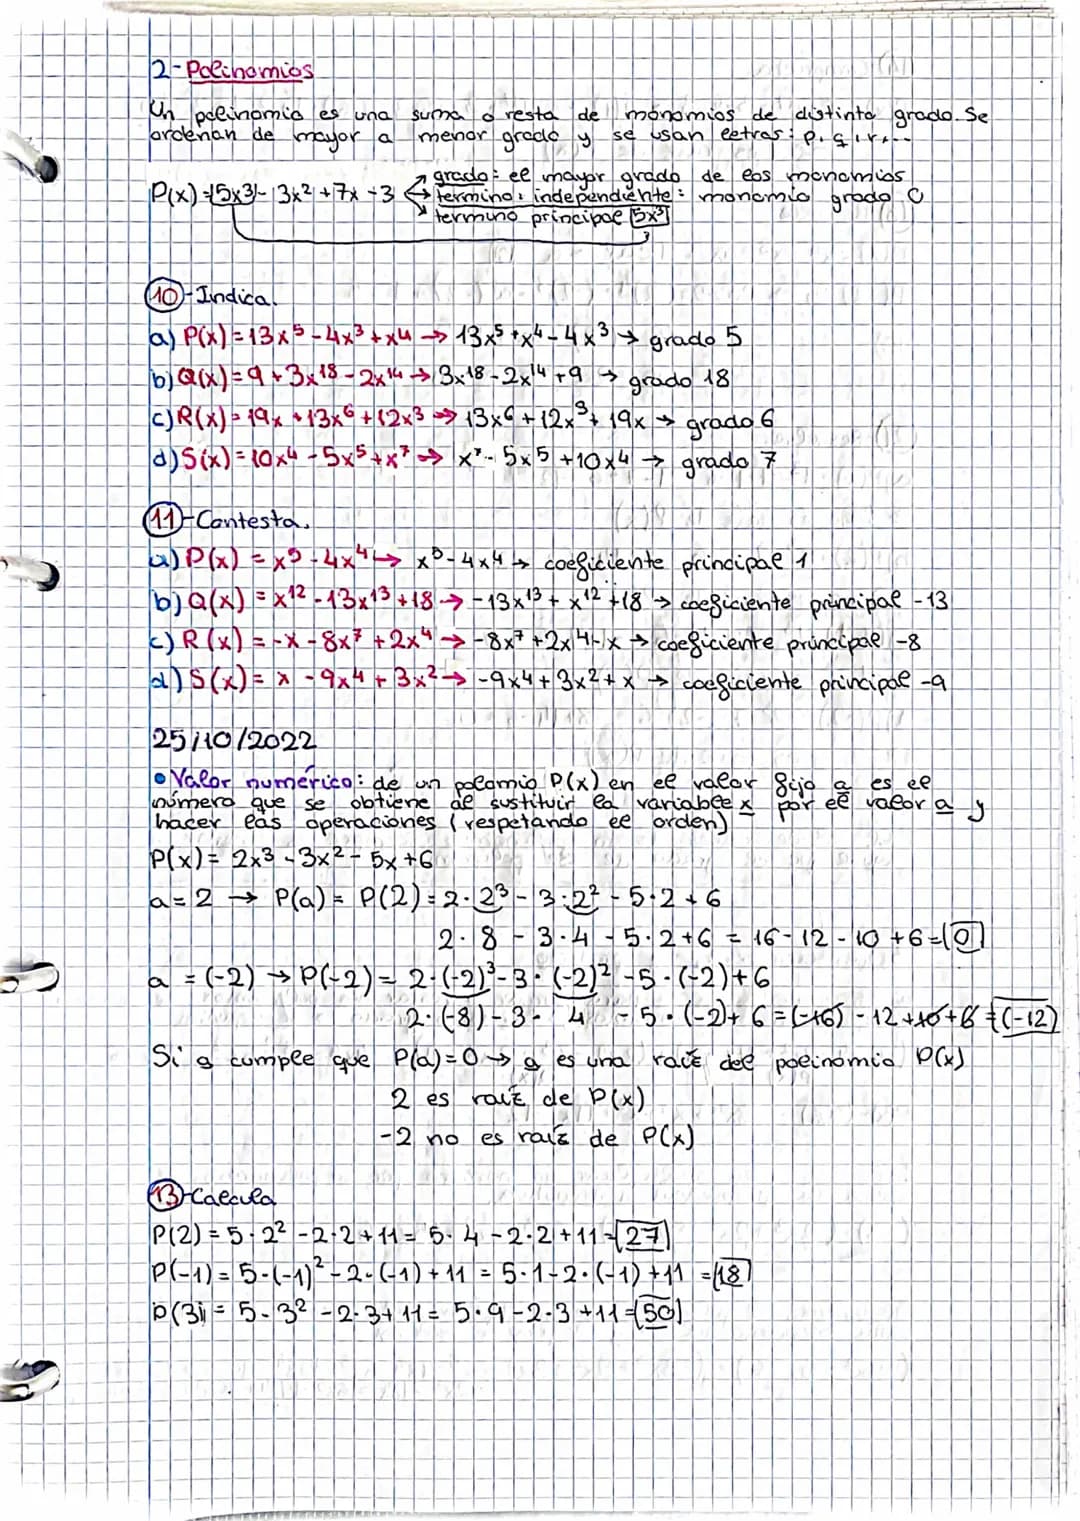 2-Polinomios
Un polinomio es una suma o resta de monomios de distinto grado. Se
ordenan de mayor a menor grado y se usan letras: p, q, r,...
P(x) = 5x3 - 3x² + 7x - 3
grado: el mayor grado de los monomios
termino independiente: monomio grado 0
termino principal 5x³
10-Indica.
a) P(x) = 13x⁵ - 4x³ + x4 → 13x⁵ + x⁴ - 4x³ → grado 5
b) Q(x) = 9 + 3x¹⁸ - 2x¹⁴ → 3x¹⁸ - 2x¹⁴ + 9 → grado 18
c) R(x) = 19x + 13x⁶ + 12x³ → 13x⁶ + 12x³ + 19x → grado 6
d) S(x) = 10x⁴ - 5x⁵ + x⁷ → x⁷ - 5x⁵ + 10x⁴ → grado 7
11-Contesta.
a) P(x) = x⁵ - 4x⁴ → x⁵ - 4x⁴ → coeficiente principal 1
b) Q(x) = x¹² - 13x¹³ + 18 → -13x¹³ + x¹² + 18 → coeficiente principal -13
c) R(x) = -x - 8x⁷ + 2x⁴ → -8x⁷ + 2x⁴ - x → coeficiente principal -8
d) S(x) = x - 9x⁴ + 3x² → -9x⁴ + 3x² + x → coeficiente principal -9
25/10/2022
• Valor numérico: de un polamio P(x) en el valor fijo a es el
número que se obtiene al sustituir la variable x por el valor a y
hacer las operaciones (respetando el orden)
P(x) = 2x³ - 3x² - 5x + 6
a = 2 → P(a) = P(2) = 2·2³ - 3·2² - 5·2 + 6
2·8 - 3·4 - 5·2 + 6 = 16 - 12 - 10 + 6 = 0
a = (-2) → P(-2) = 2·(-2)³ - 3·(-2)² - 5·(-2) + 6
2·(-8) - 3· 4 - 5·(-2) + 6 = (-16) - 12 + 10 + 6 = (-12)
Si a cumple que P(a) = 0 → a es una raíz del polinomio P(x)
2 es raíz de P(x)
-2 no es raíz de P(x)
13-Calcula
P(2) = 5·2² - 2·2 + 11 = 5·4 - 2·2 + 11 = 27
P(-1) = 5·(-1)² - 2·(-1) + 11 = 5·1 - 2·(-1) + 11 = 18
P(3) = 5·3² - 2·3 + 11 = 5·9 - 2·3 + 11 = 50